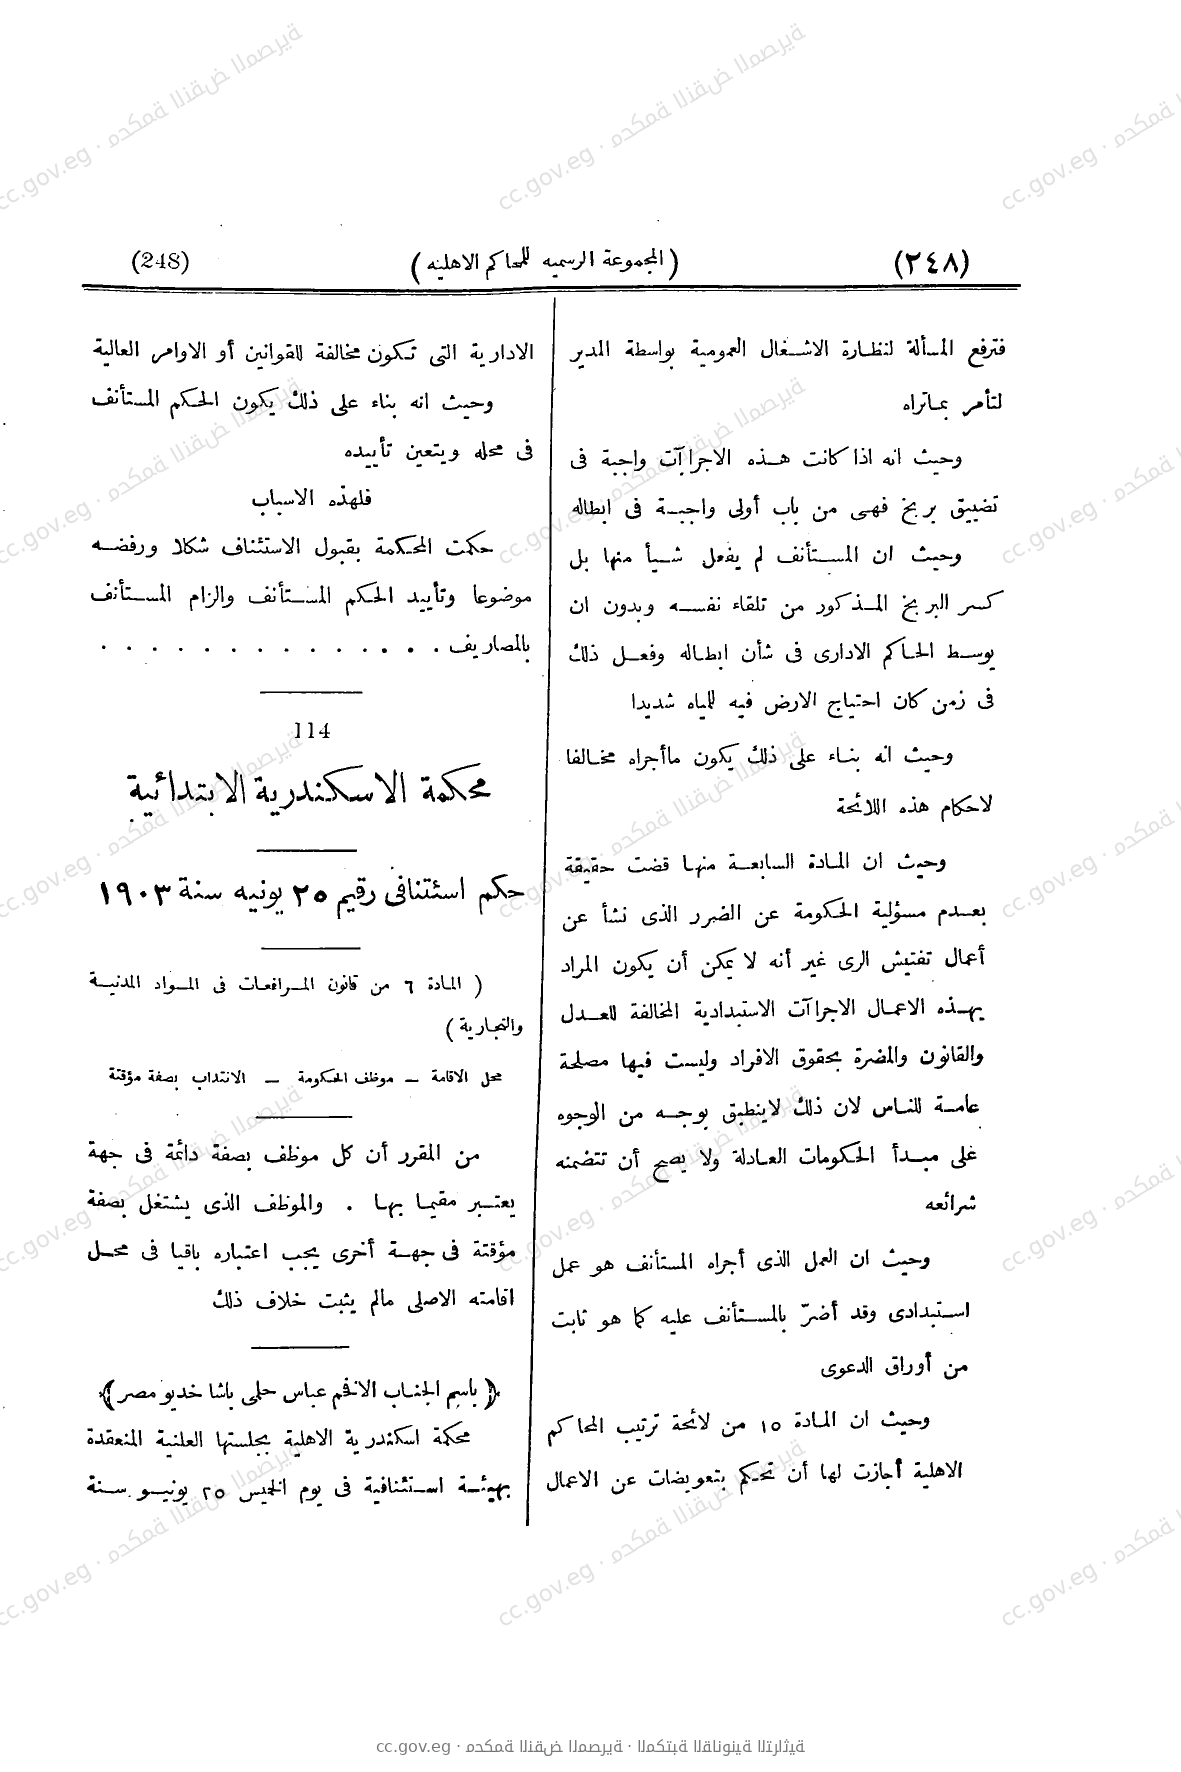 (٢٤٨) (المجموعة الرسميه للمحاكم الاهليه) (248)
فترفع المسألة لنظارة الاشغال العمومية بواسطة المدير
لتأمر بماتراه
وحيث انه اذا كانت هذه الاجراآت واجبة فى
تضييق بربخ فهى من باب أولى واجبة فى ابطاله
وحيث ان المستأنف لم يفعل شيأ منها بل
كسر البربخ المذكور من تلقاء نفسه وبدون ان
يوسط الحاكم الادارى فى شأن ابطاله وفعل ذلك
فى زمن كان احتياج الارض فيه للمياه شديدا
وحيث انه بناء على ذلك يكون ماأجراه مخالفا
لاحكام هذه اللائحة
وحيث ان المادة السابعة منها قضت حقيقة
بعدم مسؤلية الحكومة عن الضرر الذى نشأ عن
أعمال تفتيش الرى غير أنه لا يمكن أن يكون المراد
بهذه الاعمال الاجراآت الاستبدادية المخالفة للعدل
والقانون والمضرة بحقوق الافراد وليست فيها مصلحة
عامة للناس لان ذلك لاينطبق بوجه من الوجوه
على مبدأ الحكومات العادلة ولا يصح أن تتضمنه
شرائعه
وحيث ان العمل الذى أجراه المستأنف هو عمل
استبدادى وقد أضرّ بالمستأنف عليه كما هو ثابت
من أوراق الدعوى
وحيث ان المادة ١٥ من لائحة ترتيب المحاكم
الاهلية أجازت لها أن تحكم بتعويضات عن الاعمال
الادارية التى تكون مخالفة للقوانين أو الاوامر العالية
وحيث انه بناء على ذلك يكون الحكم المستأنف
فى محله ويتعين تأييده
فلهذه الاسباب
حكمت المحكمة بقبول الاستئناف شكلا ورفضه
موضوعا وتأييد الحكم المستأنف والزام المستأنف
بالمصاريف . . . . . . . . . . . . . .
114
محكمة الاسكندرية الابتدائية
حكم استئنافى رقيم ٢٥ يونيه سنة ١٩٠٣
( المادة ٦ من قانون المرافعات فى المواد المدنية
والتجارية )
محل الاقامة — موظف الحكومة — الانتداب بصفة مؤقتة
من المقرر أن كل موظف بصفة دائمة فى جهة
يعتبر مقيما بها . والموظف الذى يشتغل بصفة
مؤقتة فى جهة أخرى يجب اعتباره باقيا فى محل
اقامته الاصلى مالم يثبت خلاف ذلك
﴿ باسم الجناب الافخم عباس حلمى باشا خديو مصر ﴾
محكمة اسكندرية الاهلية بجلستها العلنية المنعقدة
بهيئة استئنافية فى يوم الخميس ٢٥ يونيو سنة
cc.gov.eg · محكمة النقض المصرية · المكتبة القانونية التراثية